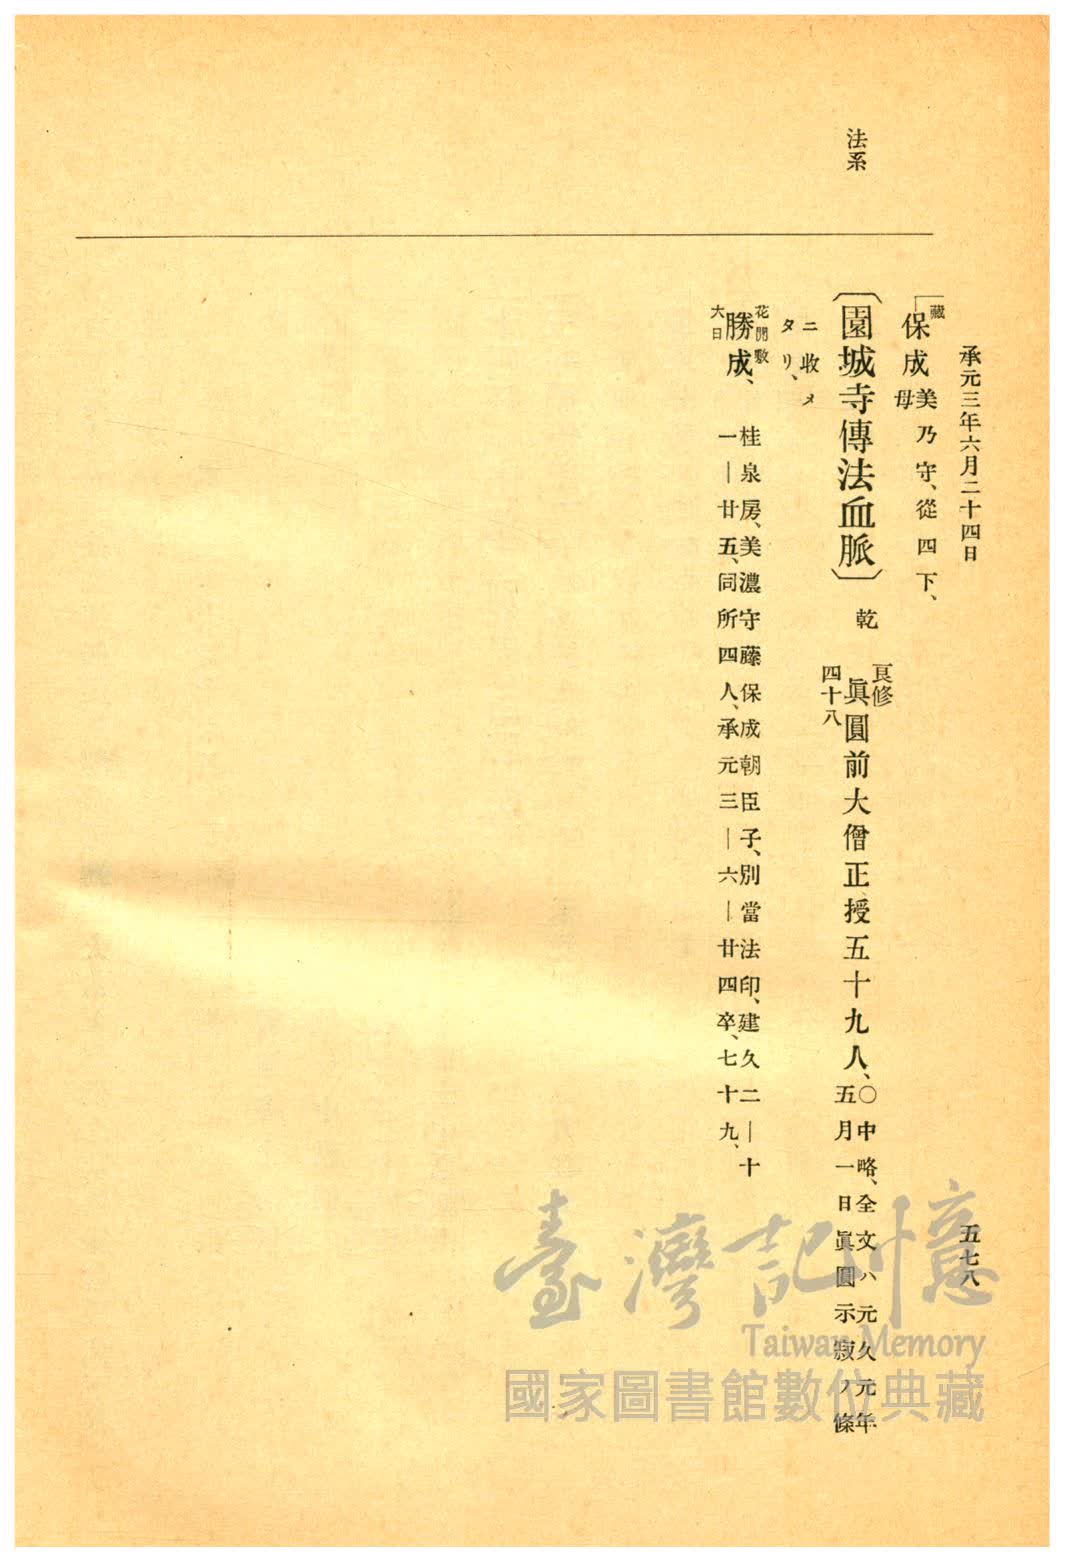 承元三年六月二十四日
五七八
法系
藏
保成
美乃守、從四下、
母
〔園城寺傳法血脈〕乾
良修
四十八
眞圓前大僧正授五十九人、
〇中略、全文ハ元久元年
五月一日眞圓示寂ノ條
ニ收メ
タリ、
花開敷
大日
勝成、
桂泉房、美濃守藤保成朝臣子、別當法印、建久二―十
一―廿五、同所四人、承元三―六―廿四卒、七十九、
臺灣記憶
Taiwan Memory
國家圖書館數位典藏